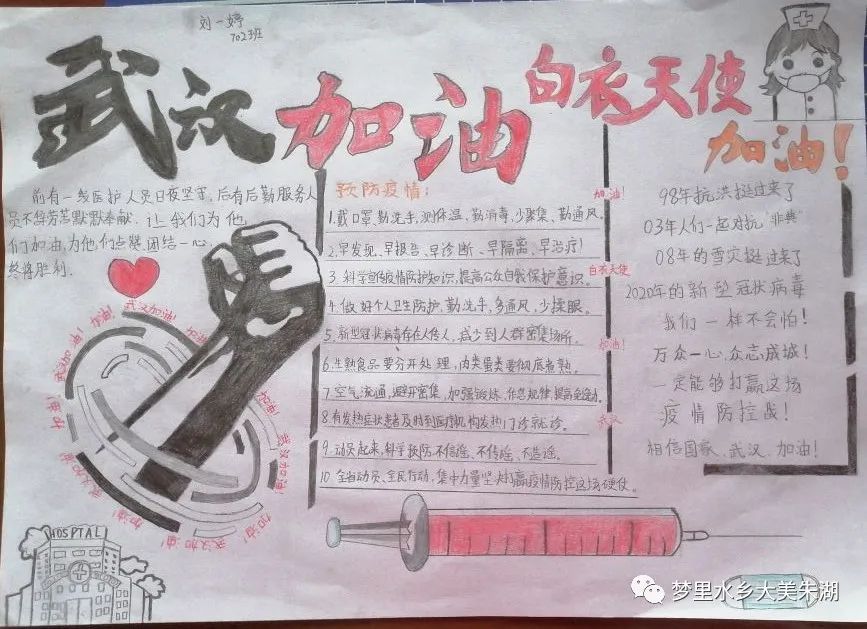 刘一婷
702班
武汉加油
白衣天使
加油！
前有一线医护人员日夜坚守，后有后勤服务人
员不辞劳苦默默奉献，让我们为他
们加油，为他们点赞，团结一心，
终将胜利．
预防疫情：
1.戴口罩、勤洗手、测体温、勤消毒、少聚集、勤通风。
2.早发现、早报告、早诊断、早隔离、早治疗！
3.科学宣传疫情防护知识，提高公众自我保护意识。
4.做好个人卫生防护，勤洗手，多通风，少揉眼。
5.新型冠状病毒存在人传人，减少到人群密集场所。
6.生熟食品要分开处理，肉类蛋类要彻底煮熟。
7.空气流通，避开密集，加强锻炼，作息规律，提高免疫力。
8.有发热症状患者及时到医疗机构发热门诊就诊。
9.动员起来，科学预防，不信谣、不传谣、不造谣。
10.全省动员、全民行动，集中力量坚决打赢疫情防控这场硬仗。
加油！
白衣天使
加油！
武汉
98年抗洪挺过来了
03年人们一起对抗“非典”
08年的雪灾挺过来了
2020年的新型冠状病毒
我们一样不会怕！
万众一心，众志成城！
一定能够打赢这场
疫情防控战！
相信国家，武汉，加油！
武汉加油！
加油！
武汉加油！
加油！
武汉加油
武汉加油！
加油！
武汉加油！
加油！
武汉加油！
加油！
HOSPTAL
梦里水乡大美朱湖